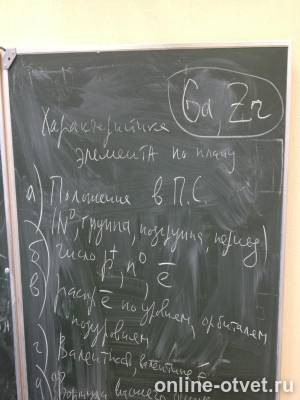 Ga, Zr
Характеристика
элемента по плану
а) Положение в П.С.
(№, группа, подгруппа, период)
б) число p⁺, n⁰, e̅
в) распр e̅ по уровням, орбиталям
подуровням
г) Валентность, валентные e̅
д) Формула высшего
online-otvet.ru